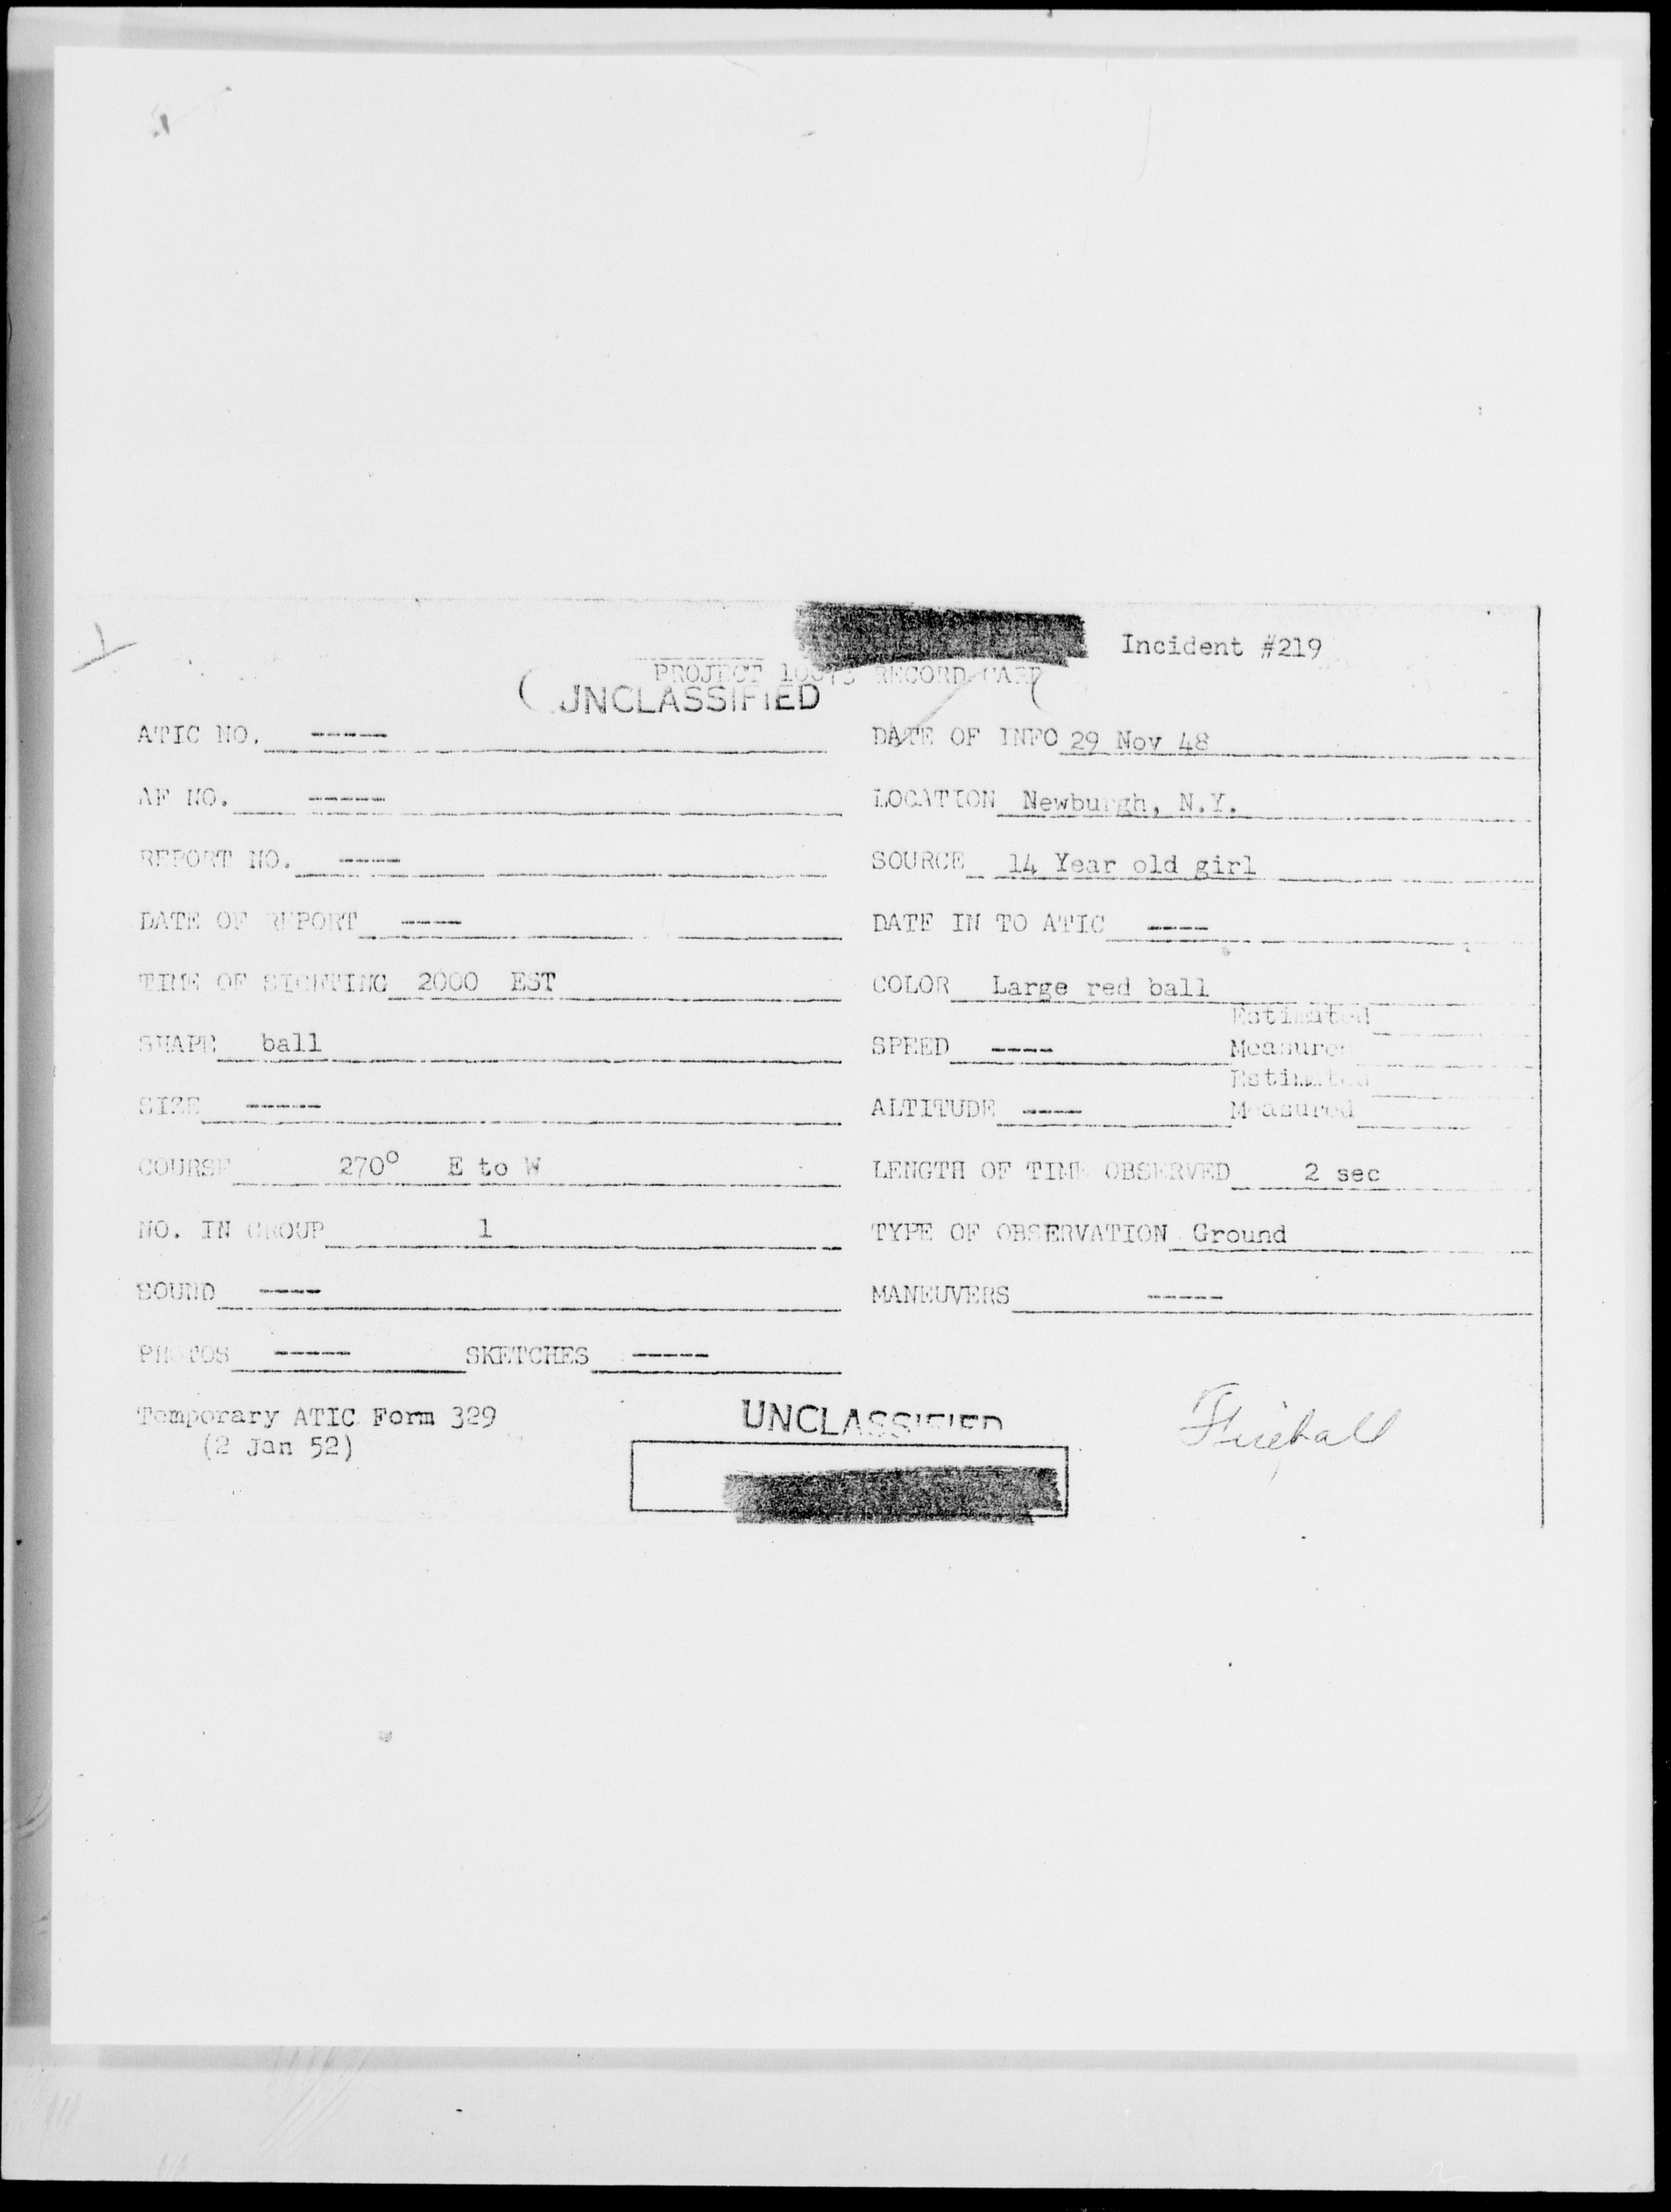 Incident #219
PROJECT 10073 RECORD CARD
UNCLASSIFIED
ATIC NO. ----- DATE OF INFO 29 Nov 48
AF NO. ----- LOCATION Newburgh, N.Y.
REPORT NO. ---- SOURCE 14 Year old girl
DATE OF REPORT ---- DATE IN TO ATIC ----
TIME OF SIGHTING 2000 EST COLOR Large red ball
Estimated
SHAPE ball SPEED ---- Measured
Estimated
SIZE ----- ALTITUDE ---- Measured
COURSE 270° E to W LENGTH OF TIME OBSERVED 2 sec
NO. IN GROUP 1 TYPE OF OBSERVATION Ground
SOUND ---- MANEUVERS -----
PHOTOS ----- SKETCHES -----
Temporary ATIC Form 329
(2 Jan 52)
UNCLASSIFIED
Fireball